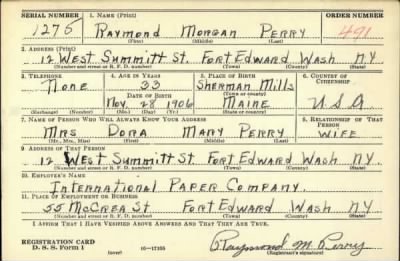 SERIAL NUMBER 1. NAME (Print) ORDER NUMBER
1276 RAYMOND MORGAN PERRY 491
(First) (Middle) (Last)
2. ADDRESS (Print)
12 WEST SUMMITT ST. FORT EDWARD WASH NY
(Number and street or R. F. D. number) (Town) (County) (State)
3. TELEPHONE 4. AGE IN YEARS 5. PLACE OF BIRTH 6. COUNTRY OF CITIZENSHIP
NONE 33 SHERMAN MILLS
DATE OF BIRTH (Town or county)
NOV. 28 1906 MAINE U.S.A
(Exchange) (Number) (Mo.) (Day) (Yr.) (State or country)
7. NAME OF PERSON WHO WILL ALWAYS KNOW YOUR ADDRESS 8. RELATIONSHIP OF THAT PERSON
MRS DORA MARY PERRY WIFE
(Mr., Mrs., Miss) (First) (Middle) (Last)
9. ADDRESS OF THAT PERSON
12 WEST SUMMITT ST. FORT EDWARD WASH NY.
(Number and street or R. F. D. number) (Town) (County) (State)
10. EMPLOYER'S NAME
INTERNATIONAL PAPER COMPANY.
11. PLACE OF EMPLOYMENT OR BUSINESS
55 MCCREA ST FORT EDWARD WASH NY
(Number and street or R. F. D. number) (Town) (County) (State)
I AFFIRM THAT I HAVE VERIFIED ABOVE ANSWERS AND THAT THEY ARE TRUE.
REGISTRATION CARD
D. S. S. Form 1 (over) 16—17105 Raymond M. Perry
(Registrant's signature)